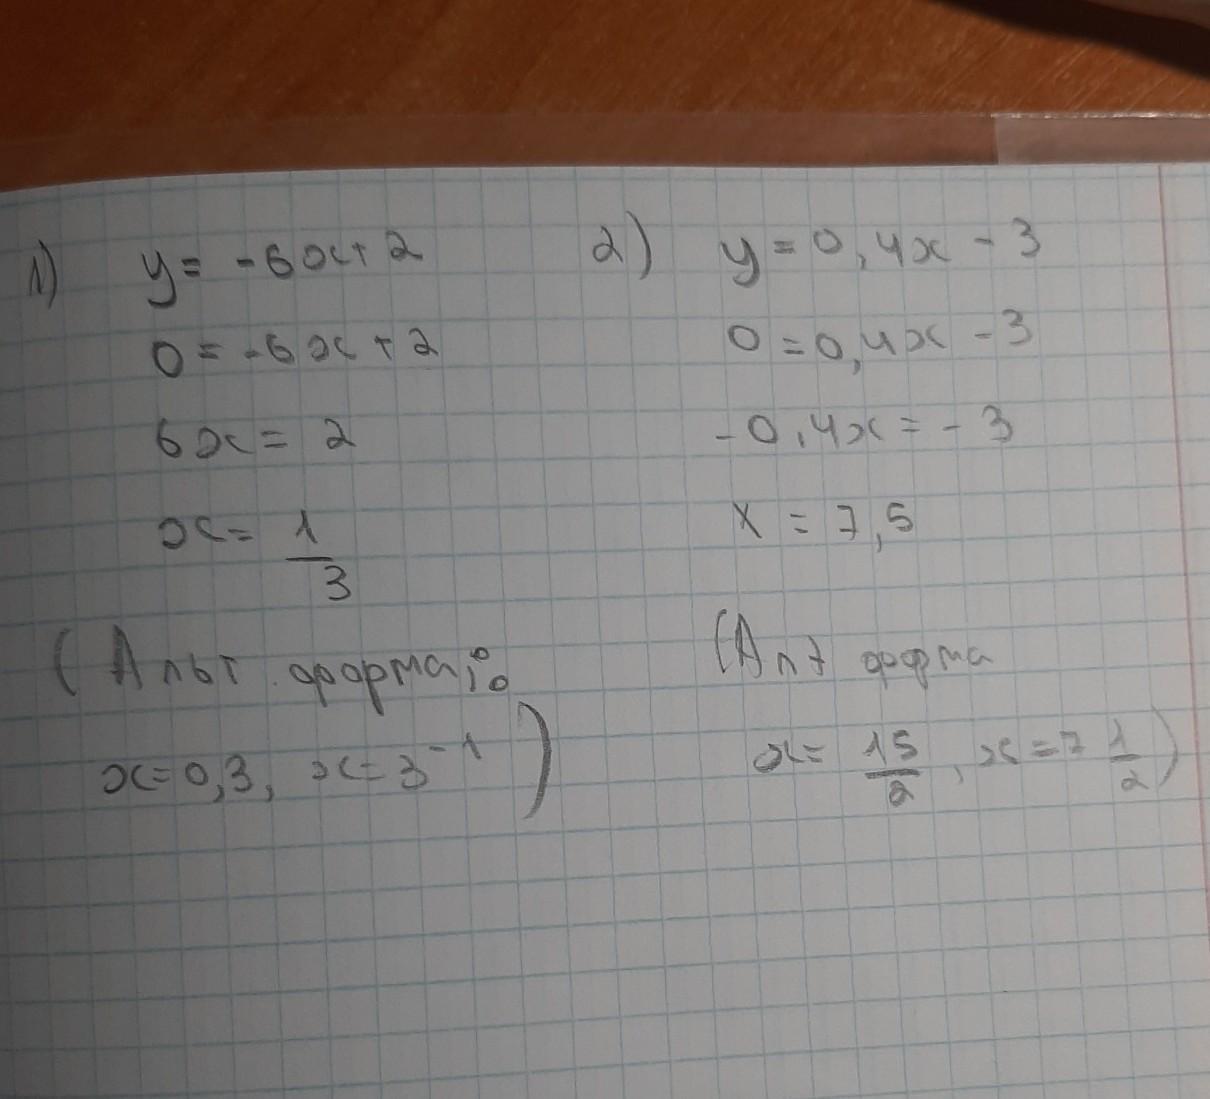 1) y = -6x + 2
0 = -6x + 2
6x = 2
x = 1/3
(Альт. форма:
x = 0,3, x = 3⁻¹)
2) y = 0,4x - 3
0 = 0,4x - 3
-0,4x = -3
x = 7,5
(Алт форма
x = 15/2, x = 7 1/2)